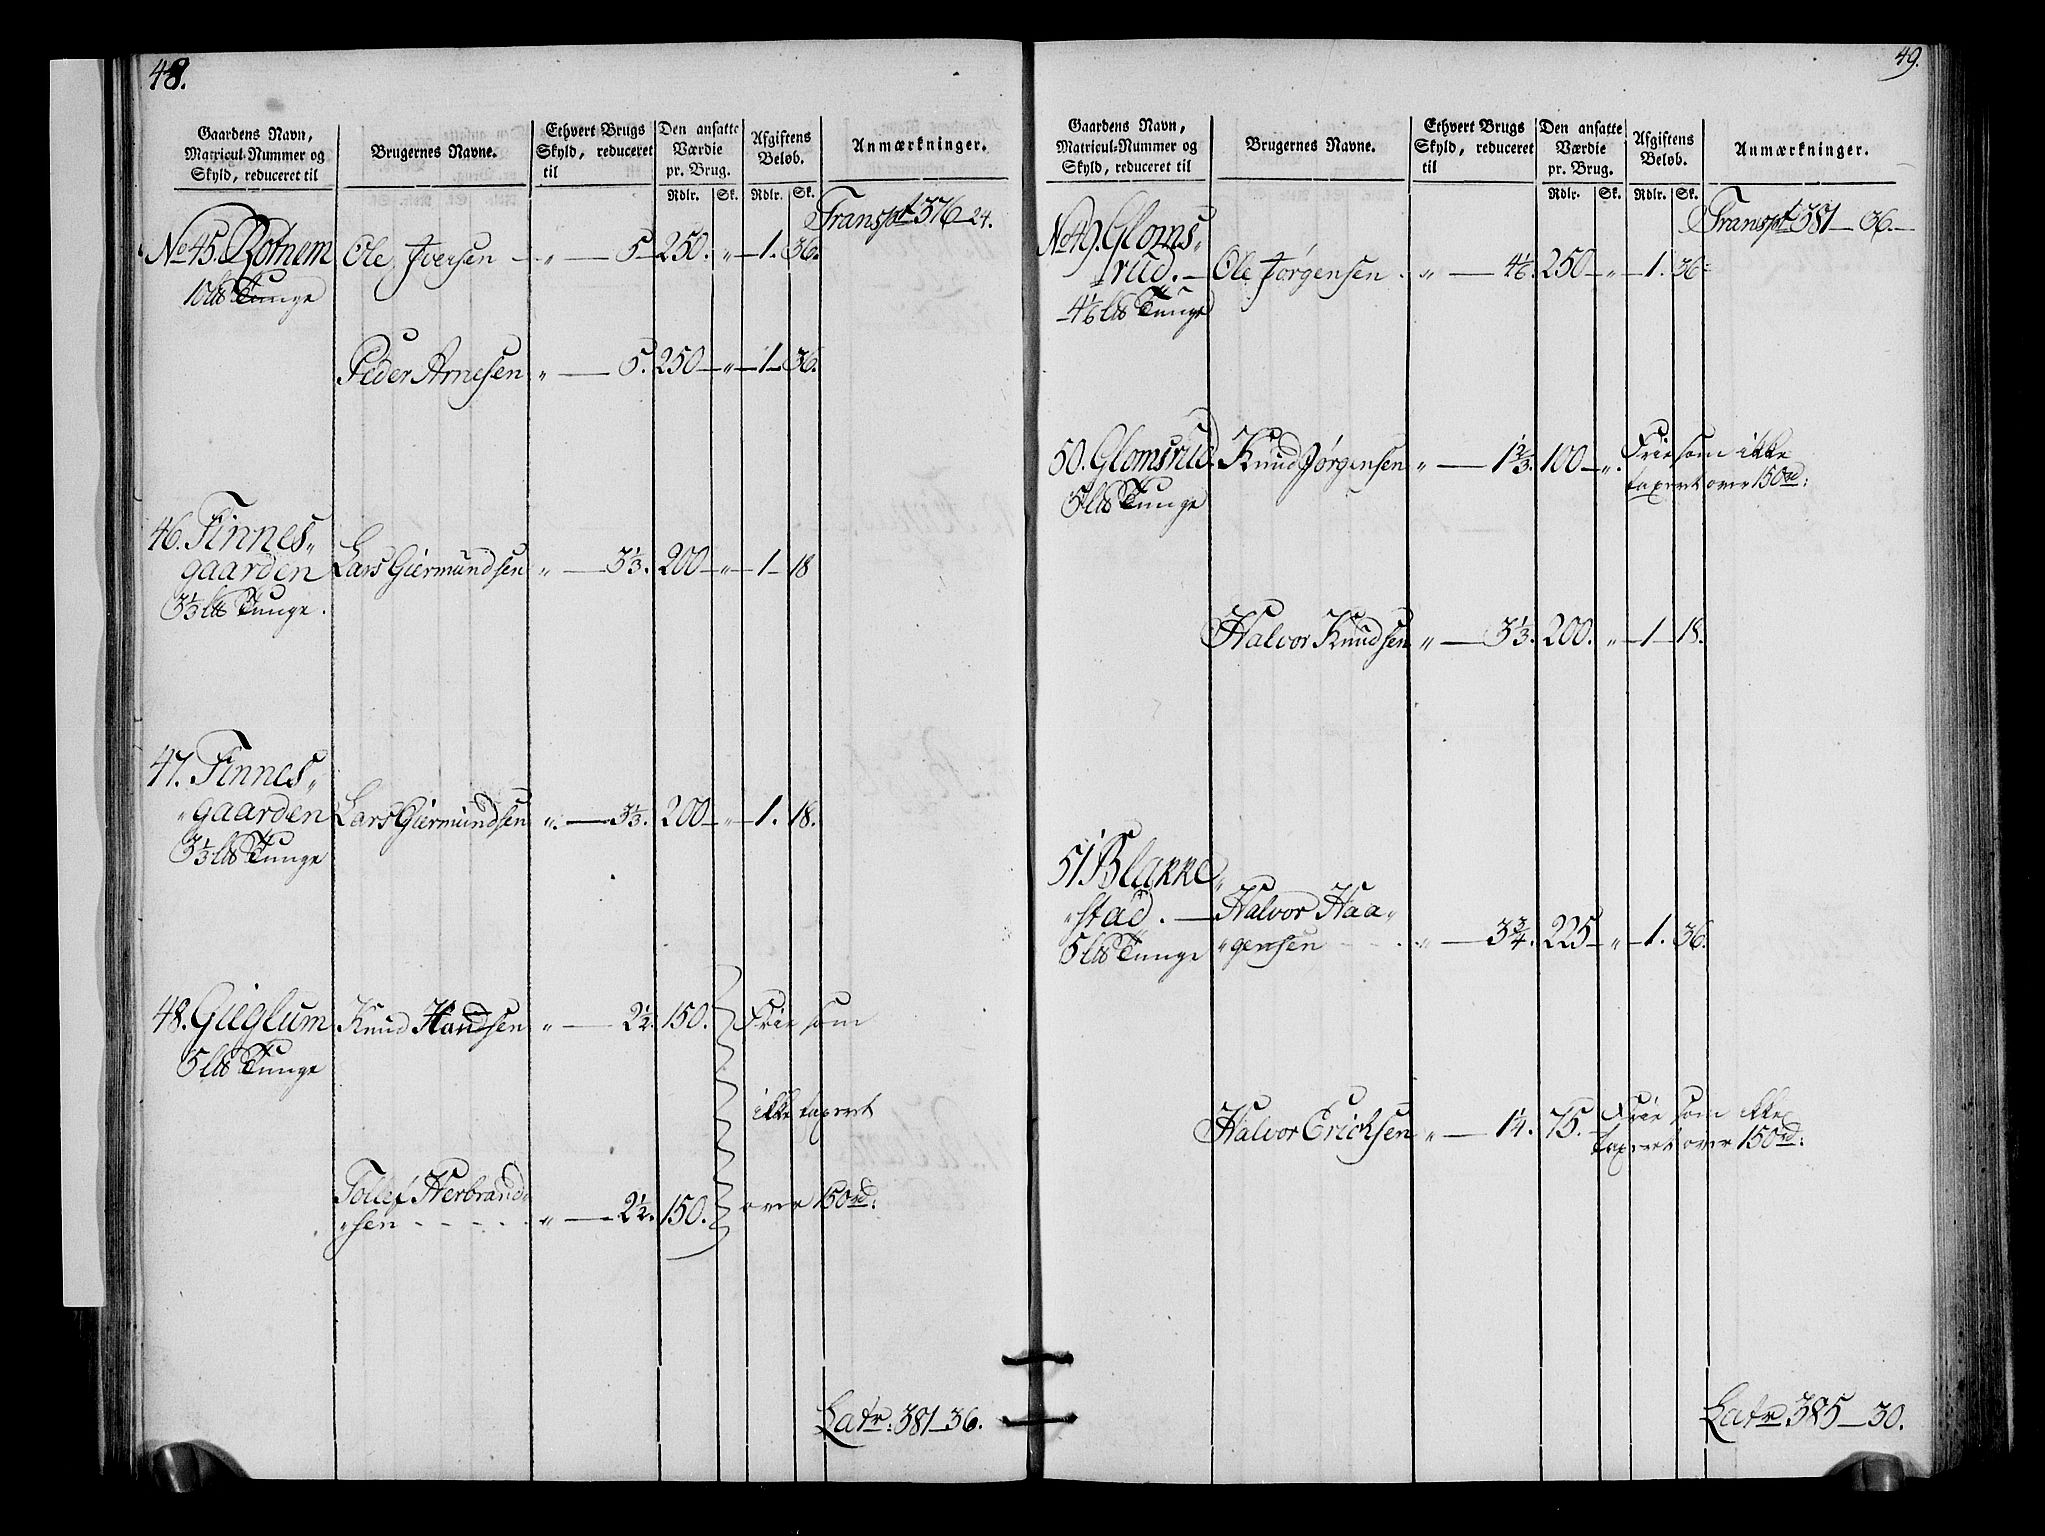 48.
Gaardens Navn, Matricul-Nummer og Skyld, reduceret til | Brugernes Navne. | Ethvert Brugs Skyld, reduceret til | Den ansatte Værdie pr. Brug. | Afgiftens Beløb. | Anmærkninger.
Rdlr. | Sk. | Rdlr. | Sk.
Transpt 376–24.
No 45. Rotnem Ole Iversen – „ — 5 – 250. „ – 1. 36.
10 lb Tunge
Peder Arnesen „ — 5. 250 – „ – 1 – 36.
46. Finnes„
gaarden Lars Giermundsen „ — 3⅓. 200 – „ – 1 – 18
3⅓ lb Tunge.
47. Finnes„
„gaarden Lars Giermundsen „ — 3⅓. 200 – „ – 1. 18.
3⅓ lb Tunge
48. Gieglum Knud Handsen „ — 2½. 150. Frie som
5 lb Tunge
ikke taxeret
Tollef Herbrand„
„sen - - - - - „ — 2½. 150. over 150 rd:
Latr: 381–36.
49.
Gaardens Navn, Matricul-Nummer og Skyld, reduceret til | Brugernes Navne. | Ethvert Brugs Skyld, reduceret til | Den ansatte Værdie pr. Brug. | Afgiftens Beløb. | Anmærkninger.
Rdlr. | Sk. | Rdlr. | Sk.
Transpt 381–36.
No 49. Gloms„
rud. – Ole Jørgensen. „ — 4⅙. 250 – „ – 1. 36
4⅙ lb Tunge
50. Glomsrud. Knud Jørgensen „ — 1⅔. 100 – „. Frie som ikke
5 lb Tunge taxeret over 150 rd:
Halvor Knudsen „ — 3⅓. 200. „ – 1 – 18.
51 Blakke„
„stad. — Halvor Haa„
5 lb Tunge „gensen - - - „ — 3¾. 225 – „ – 1. 36.
Halvor Ericksen „ — 1¼. 75. – Frie som ikke
taxeret over 150 rd:
Latr 385–30.